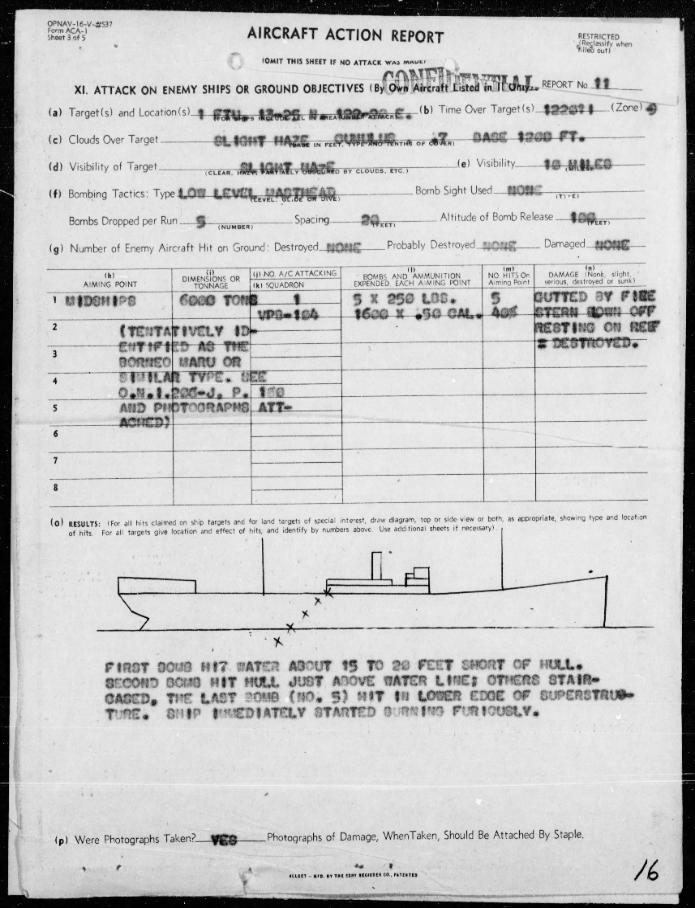 OPNAV-16-V-#S37
Form ACA-1
Sheet 3 of 5
AIRCRAFT ACTION REPORT
RESTRICTED
(Reclassify when
filled out)
(OMIT THIS SHEET IF NO ATTACK WAS MADE)
CONFIDENTIAL
XI. ATTACK ON ENEMY SHIPS OR GROUND OBJECTIVES (By Own Aircraft Listed in II Only). REPORT No. 11
(a) Target(s) and Location(s) 1 (b) Time Over Target(s) (Zone)
(c) Clouds Over Target SLIGHT HAZE CUMULUS .7 BASE 1200 FT.
(BASE IN FEET, TYPE AND TENTHS OF COVER)
(d) Visibility of Target SLIGHT HAZE (e) Visibility 10 MILES
(CLEAR, HAZY, PARTIALLY OBSCURED BY CLOUDS, ETC.)
(f) Bombing Tactics: Type LOW LEVEL MASTHEAD Bomb Sight Used NONE
(LEVEL, GLIDE OR DIVE) (TYPE)
Bombs Dropped per Run 5 Spacing 20 Altitude of Bomb Release 100
(NUMBER) (FEET) (FEET)
(g) Number of Enemy Aircraft Hit on Ground: Destroyed NONE Probably Destroyed NONE Damaged NONE
(h) AIMING POINT
(i) DIMENSIONS OR TONNAGE
(j) NO. A/C ATTACKING
(k) SQUADRON
(l) BOMBS AND AMMUNITION EXPENDED, EACH AIMING POINT
(m) NO HITS On Aiming Point
(n) DAMAGE (None, slight, serious, destroyed or sunk)
1 MIDSHIPS 6000 TONS 1 5 X 250 LBS. 5 GUTTED BY FIRE
VPB-104 1600 X .50 CAL. 40% STERN DOWN OFF
2 (TENTATIVELY ID- RESTING ON REEF
ENTIFIED AS THE = DESTROYED.
3 BORNEO MARU OR
SIMILAR TYPE. SEE
4 O.N.I.208-J, P. 150
5 AND PHOTOGRAPHS ATT-
ACHED)
6
7
8
(o) RESULTS: (For all hits claimed on ship targets and for land targets of special interest, draw diagram, top or side view or both, as appropriate, showing type and location
of hits. For all targets give location and effect of hits, and identify by numbers above. Use additional sheets if necessary)
FIRST BOMB HIT WATER ABOUT 15 TO 20 FEET SHORT OF HULL.
SECOND BOMB HIT HULL JUST ABOVE WATER LINE; OTHERS STAIR-
CASED, THE LAST BOMB (NO. 5) HIT IN LOWER EDGE OF SUPERSTRUC-
TURE. SHIP IMMEDIATELY STARTED BURNING FURIOUSLY.
(p) Were Photographs Taken? YES Photographs of Damage, When Taken, Should Be Attached By Staple.
16